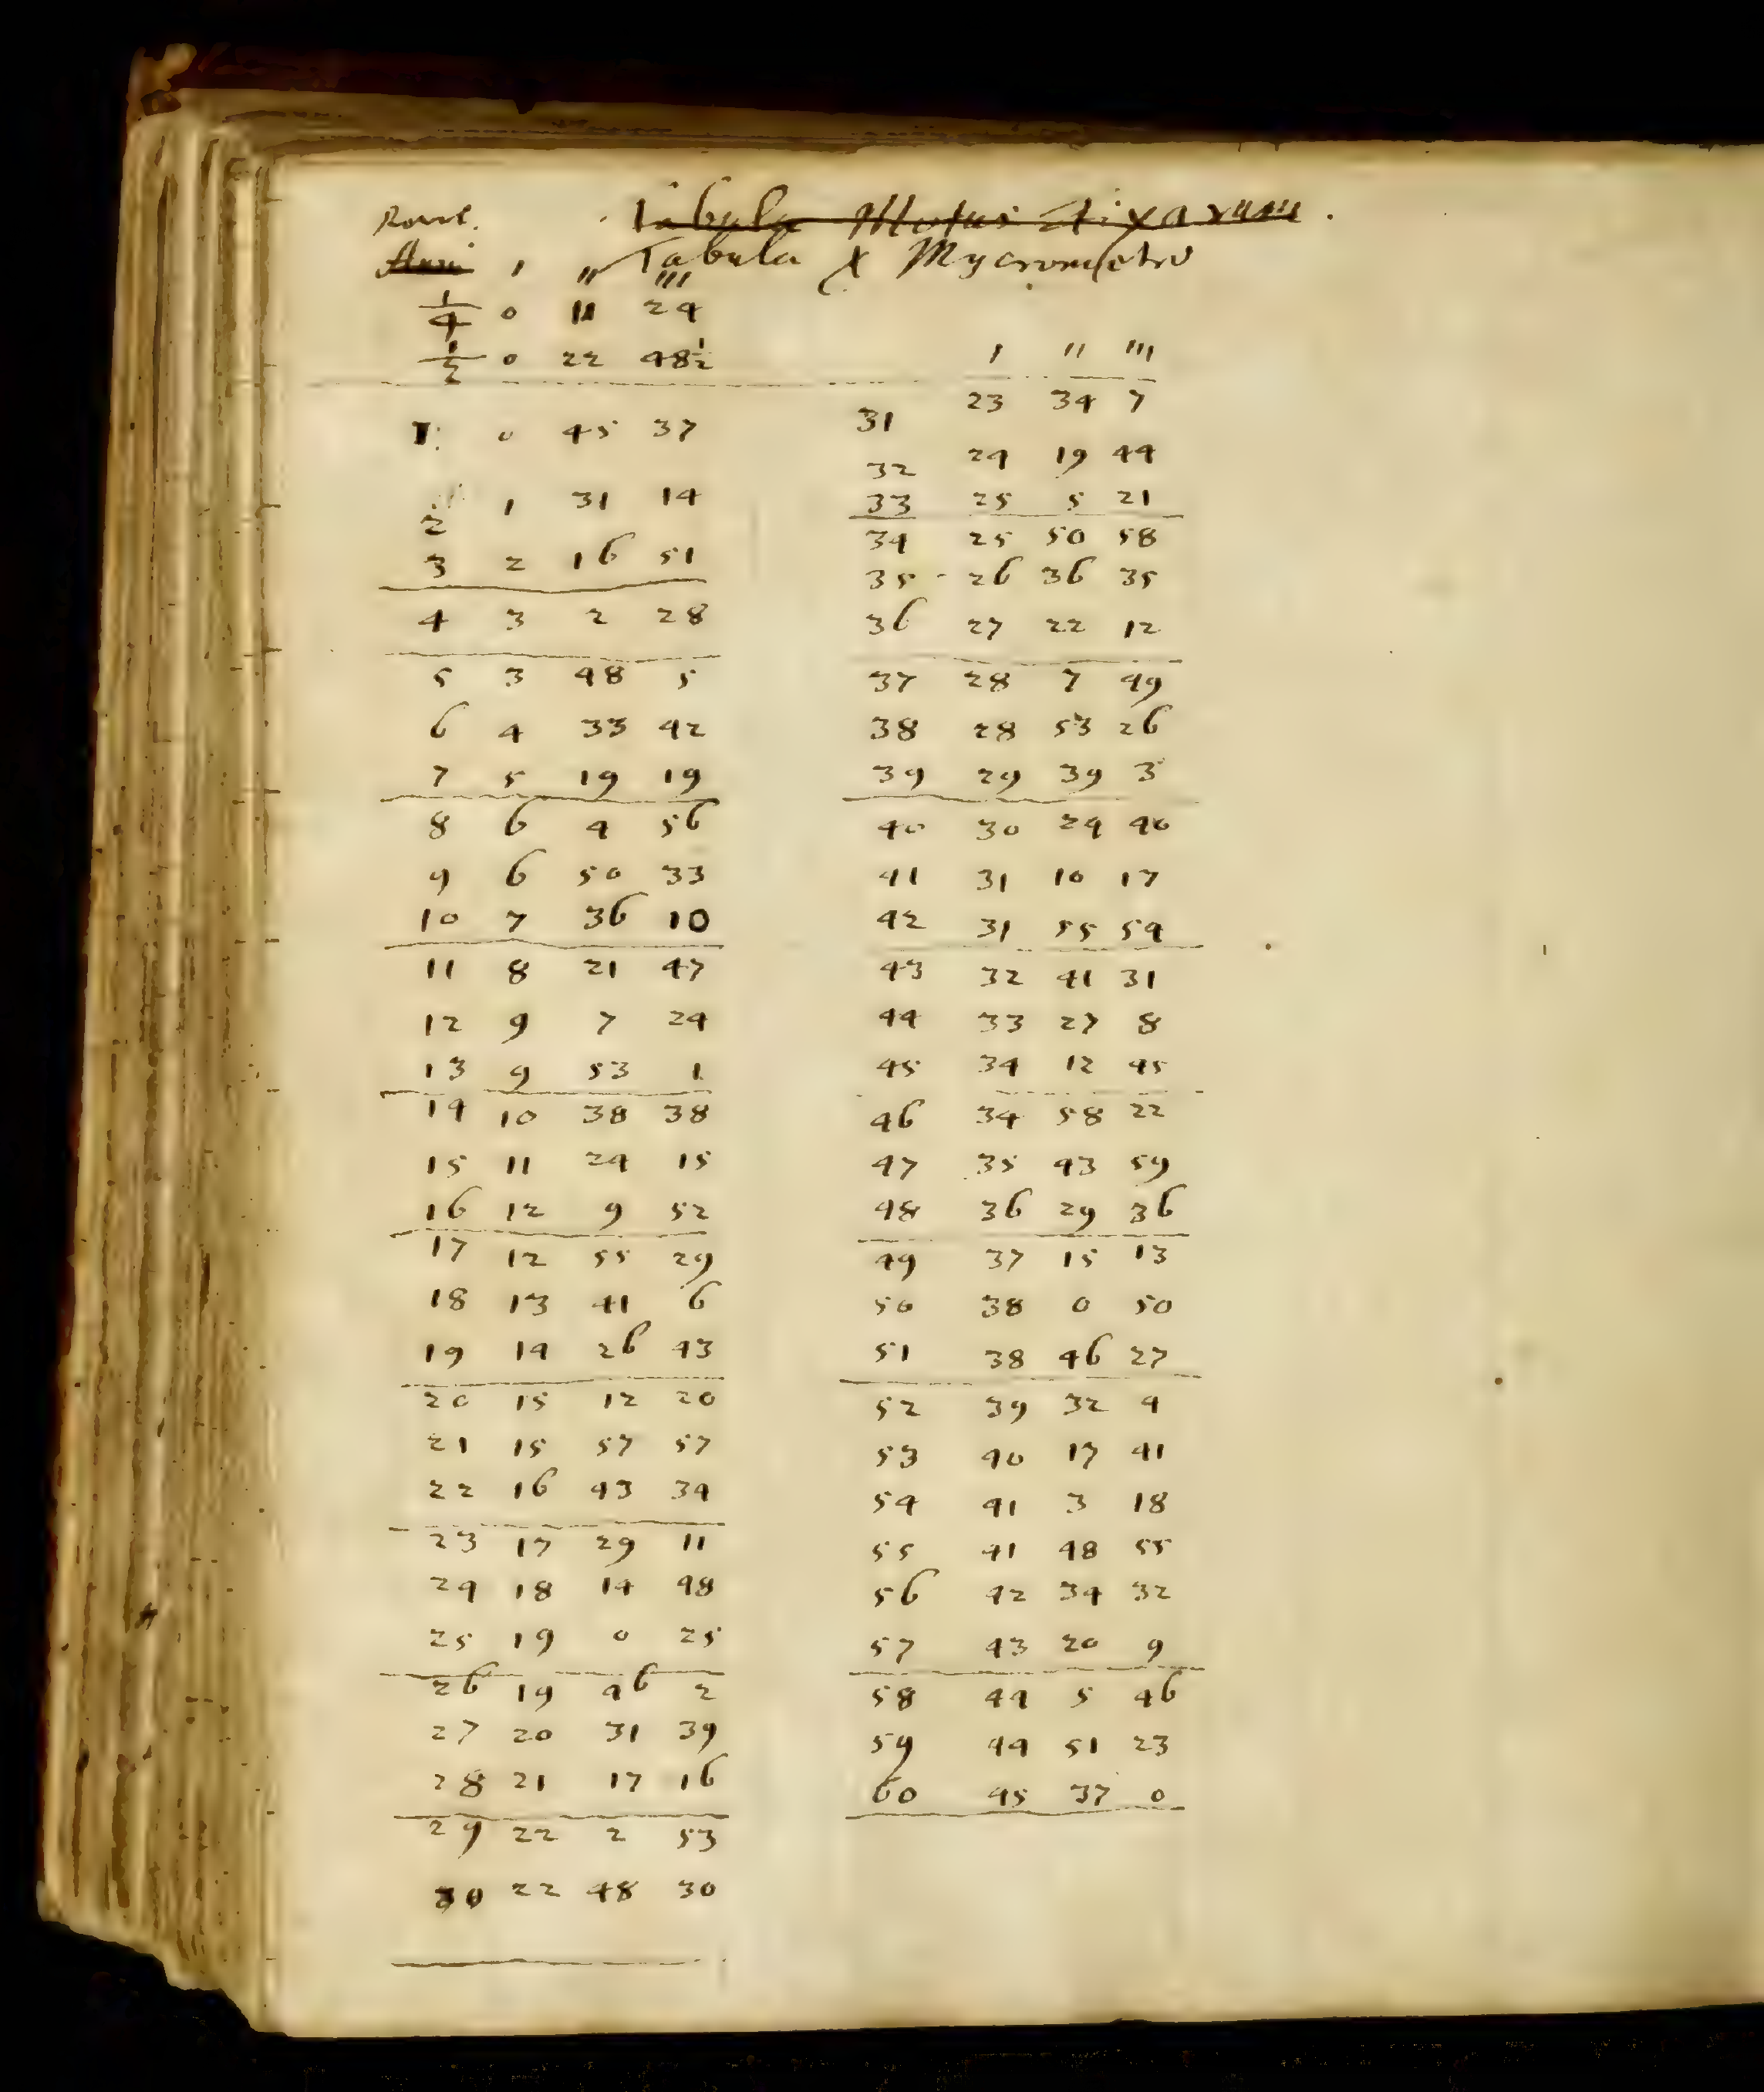 Tabula Motus Fixarum.
Tabula Mycrometro
' '' '''
1/4 0 11 24
1/2 0 22 48 1/2
1: 0 45 37
2 1 31 14
3 2 16 51
4 3 2 28
5 3 48 5
6 4 33 42
7 5 19 19
8 6 4 56
9 6 50 33
10 7 36 10
11 8 21 47
12 9 7 24
13 9 53 1
14 10 38 38
15 11 24 15
16 12 9 52
17 12 55 29
18 13 41 6
19 14 26 43
20 15 12 20
21 15 57 57
22 16 43 34
23 17 29 11
24 18 14 48
25 19 0 25
26 19 46 2
27 20 31 39
28 21 17 16
29 22 2 53
30 22 48 30
' '' '''
31 23 34 7
32 24 19 44
33 25 5 21
34 25 50 58
35 26 36 35
36 27 22 12
37 28 7 49
38 28 53 26
39 29 39 3
40 30 24 40
41 31 10 17
42 31 55 54
43 32 41 31
44 33 27 8
45 34 12 45
46 34 58 22
47 35 43 59
48 36 29 36
49 37 15 13
50 38 0 50
51 38 46 27
52 39 32 4
53 40 17 41
54 41 3 18
55 41 48 55
56 42 34 32
57 43 20 9
58 44 5 46
59 44 51 23
60 45 37 0